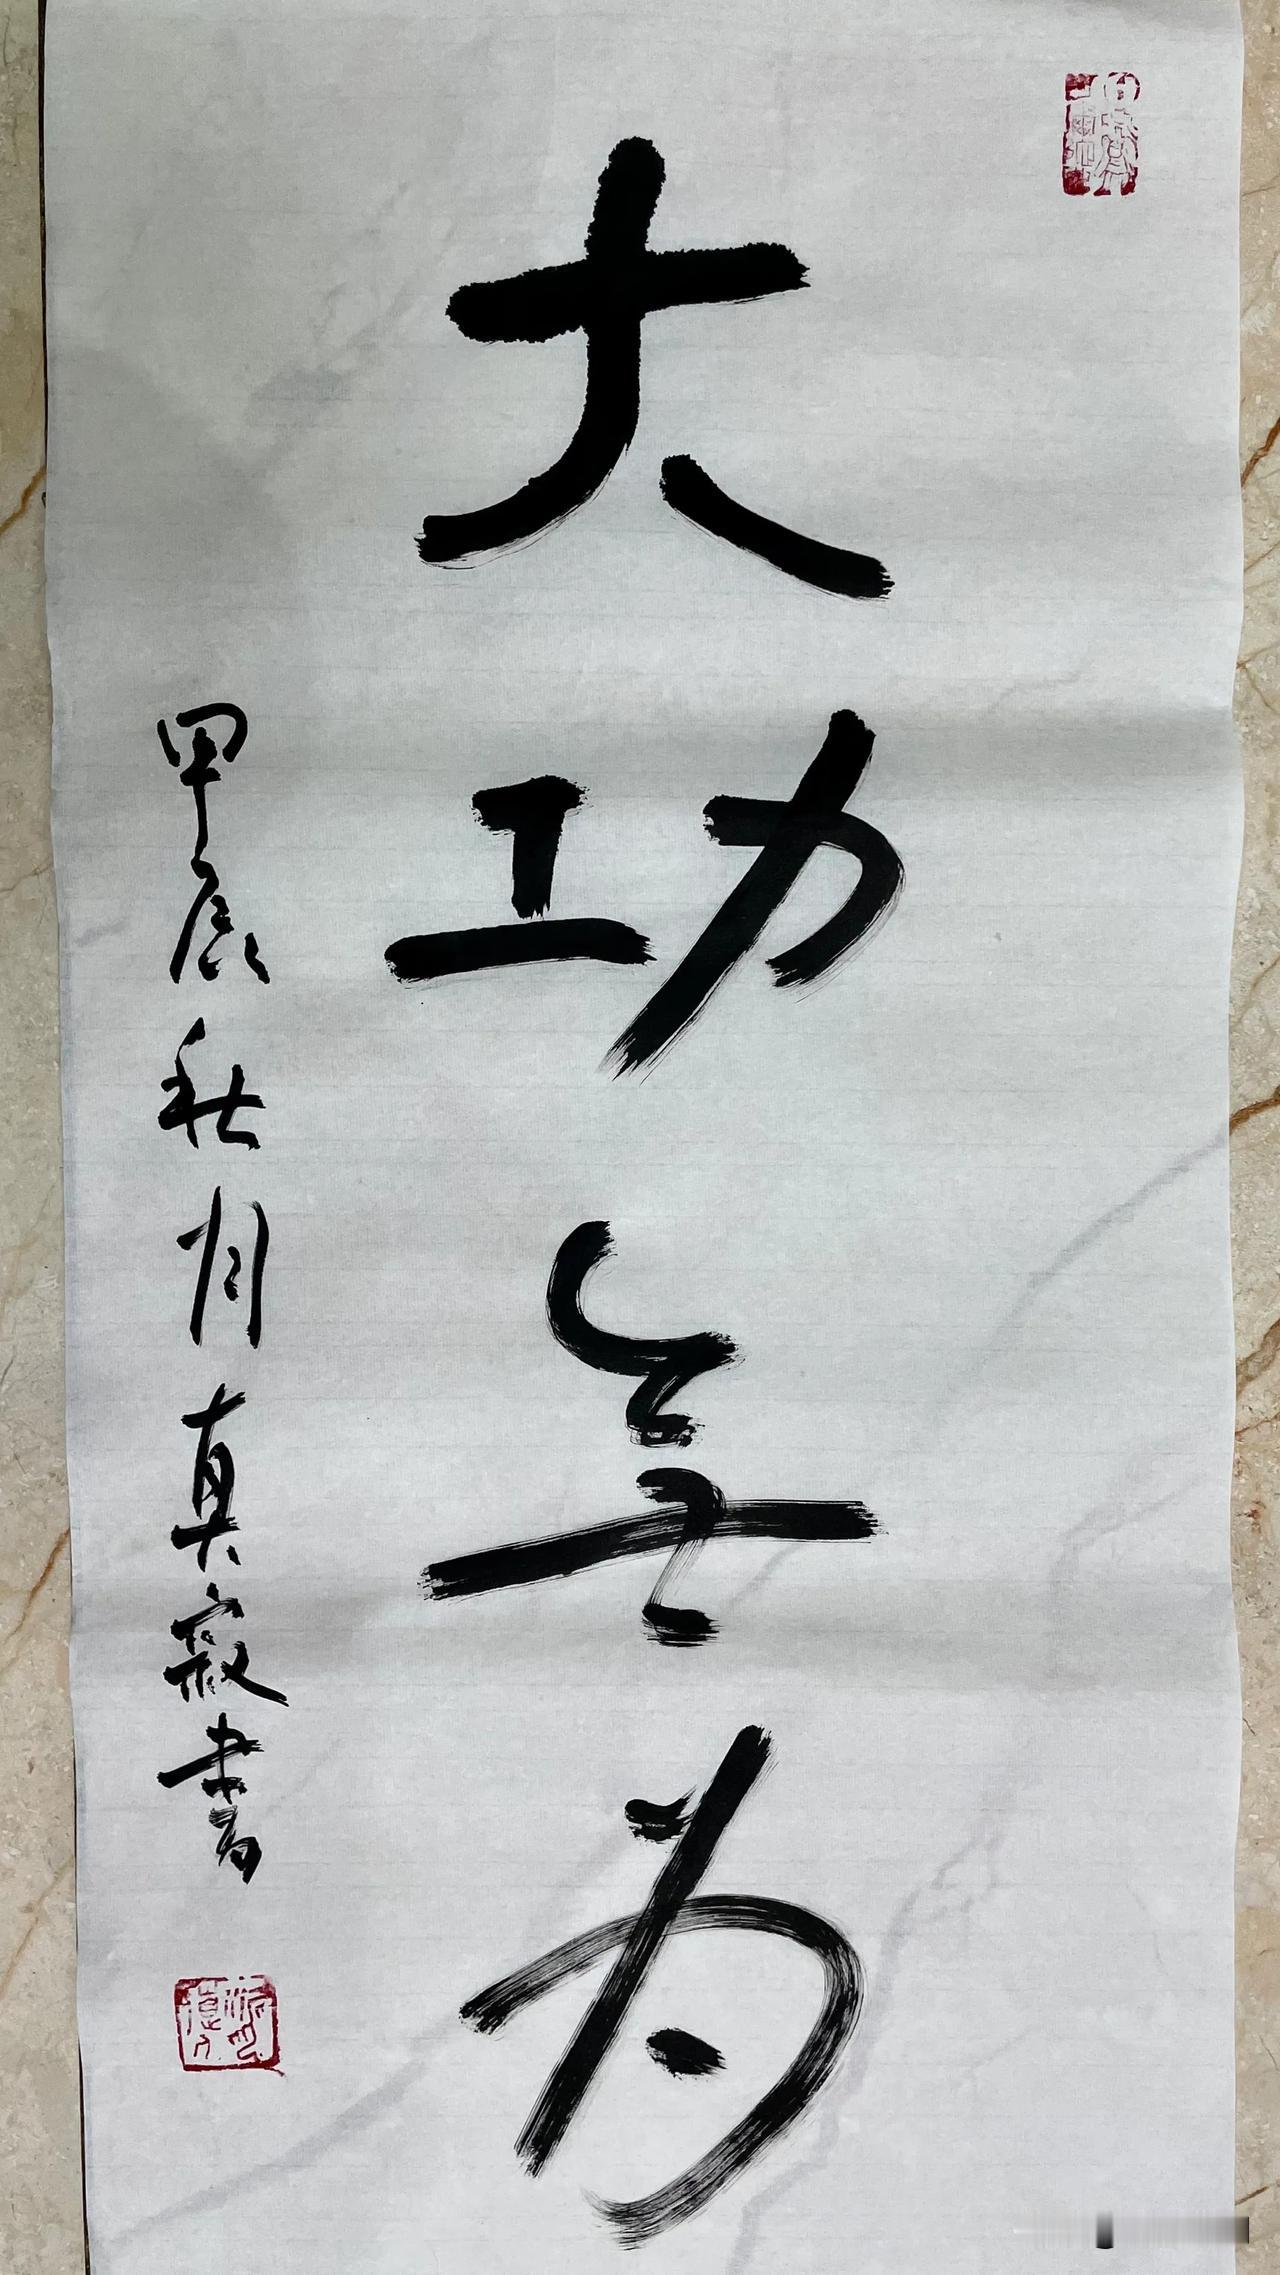 大功無为
甲辰秋月真寂書